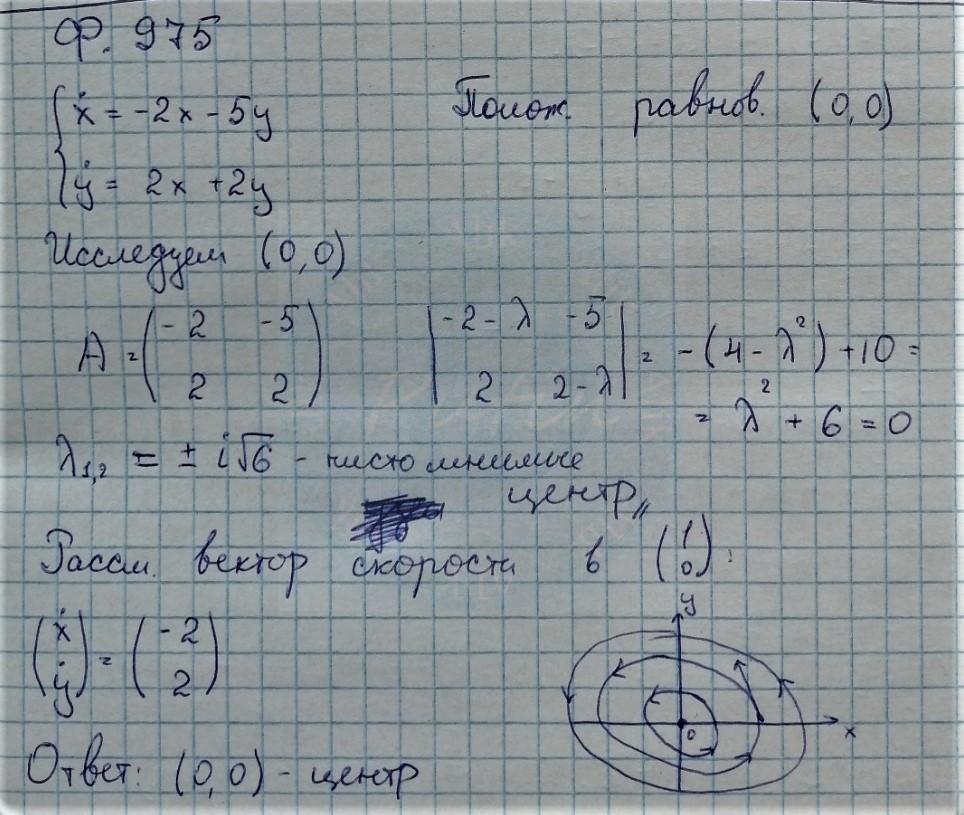 Ф. 975
{ ẋ = -2x - 5y
ẏ = 2x + 2y
Полож. равнов. (0,0)
Исследуем (0,0)
A = ( -2 -5
2 2 )
| -2-λ -5
2 2-λ | = -(4-λ²)+10 =
= λ² + 6 = 0
λ₁,₂ = ± i√6 - чисто мнимые
центр
Рассм. вектор скорости в (1
0):
(ẋ
ẏ) = (-2
2)
y
0
x
Ответ: (0,0) - центр